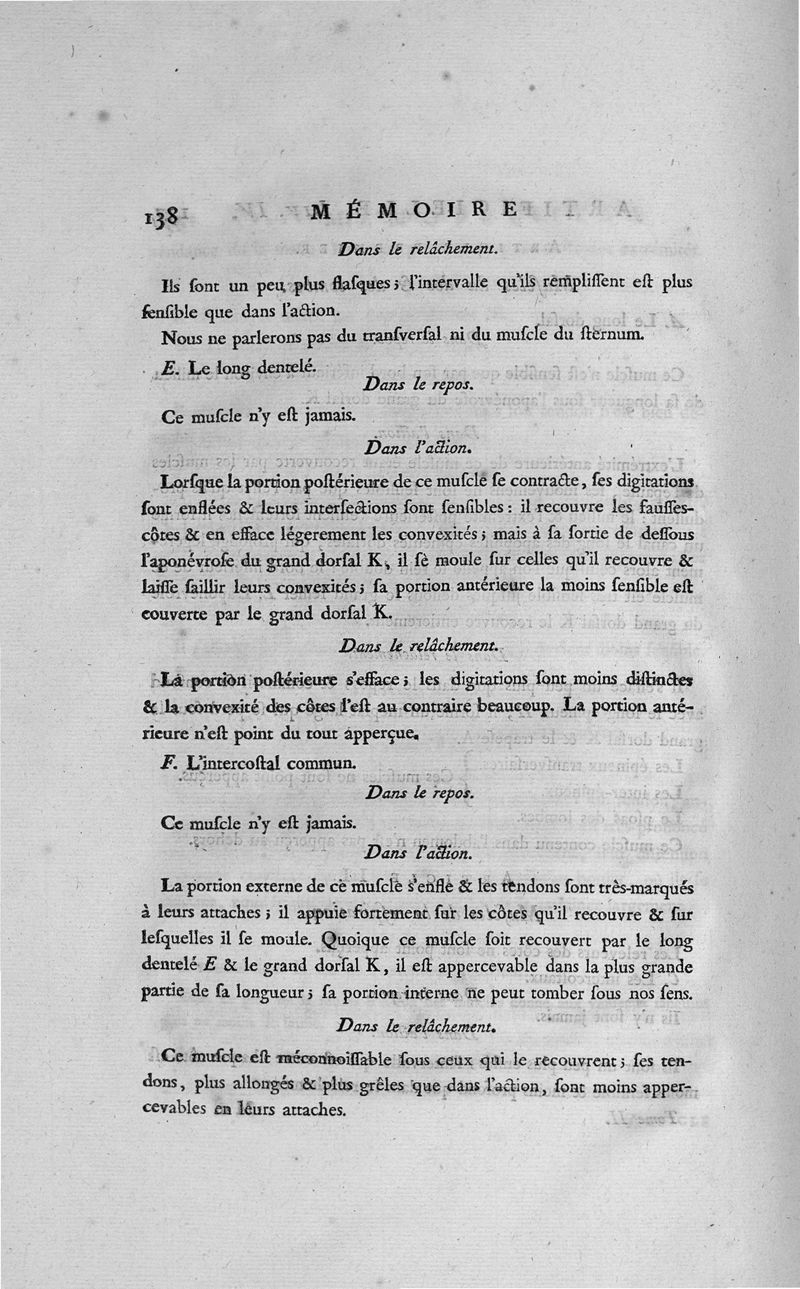 138 MÉMOIRE
Dans le relâchement.
Ils ſont un peu plus flaſques ; l'intervalle qu'ils rempliſſent eſt plus
ſenſible que dans l'action.
Nous ne parlerons pas du tranſverſal ni du muſcle du ſternum.
E. Le long dentelé.
Dans le repos.
Ce muſcle n'y eſt jamais.
Dans l'action.
Lorſque la portion poſtérieure de ce muſcle ſe contracte, ſes digitations
ſont enflées & leurs interſections ſont ſenſibles : il recouvre les fauſſes-
côtes & en efface légerement les convexités ; mais à ſa ſortie de deſſous
l'aponévroſe du grand dorſal K, il ſe moule ſur celles qu'il recouvre &
laiſſe ſaillir leurs convexités ; ſa portion antérieure la moins ſenſible eſt
couverte par le grand dorſal K.
Dans le relâchement.
La portion poſtérieure s'efface ; les digitations ſont moins diſtinctes
& la convexité des côtes l'eſt au contraire beaucoup. La portion anté-
rieure n'eſt point du tout apperçue.
F. L'intercoſtal commun.
Dans le repos.
Ce muſcle n'y eſt jamais.
Dans l'action.
La portion externe de ce muſcle s'enfle & les tendons ſont très-marqués
à leurs attaches ; il appuie fortement ſur les côtes qu'il recouvre & ſur
leſquelles il ſe moule. Quoique ce muſcle ſoit recouvert par le long
dentelé E & le grand dorſal K, il eſt appercevable dans la plus grande
partie de ſa longueur ; ſa portion interne ne peut tomber ſous nos ſens.
Dans le relâchement.
Ce muſcle eſt méconnoiſſable ſous ceux qui le recouvrent ; ſes ten-
dons, plus allongés & plus grêles que dans l'action, ſont moins apper-
cevables en leurs attaches.